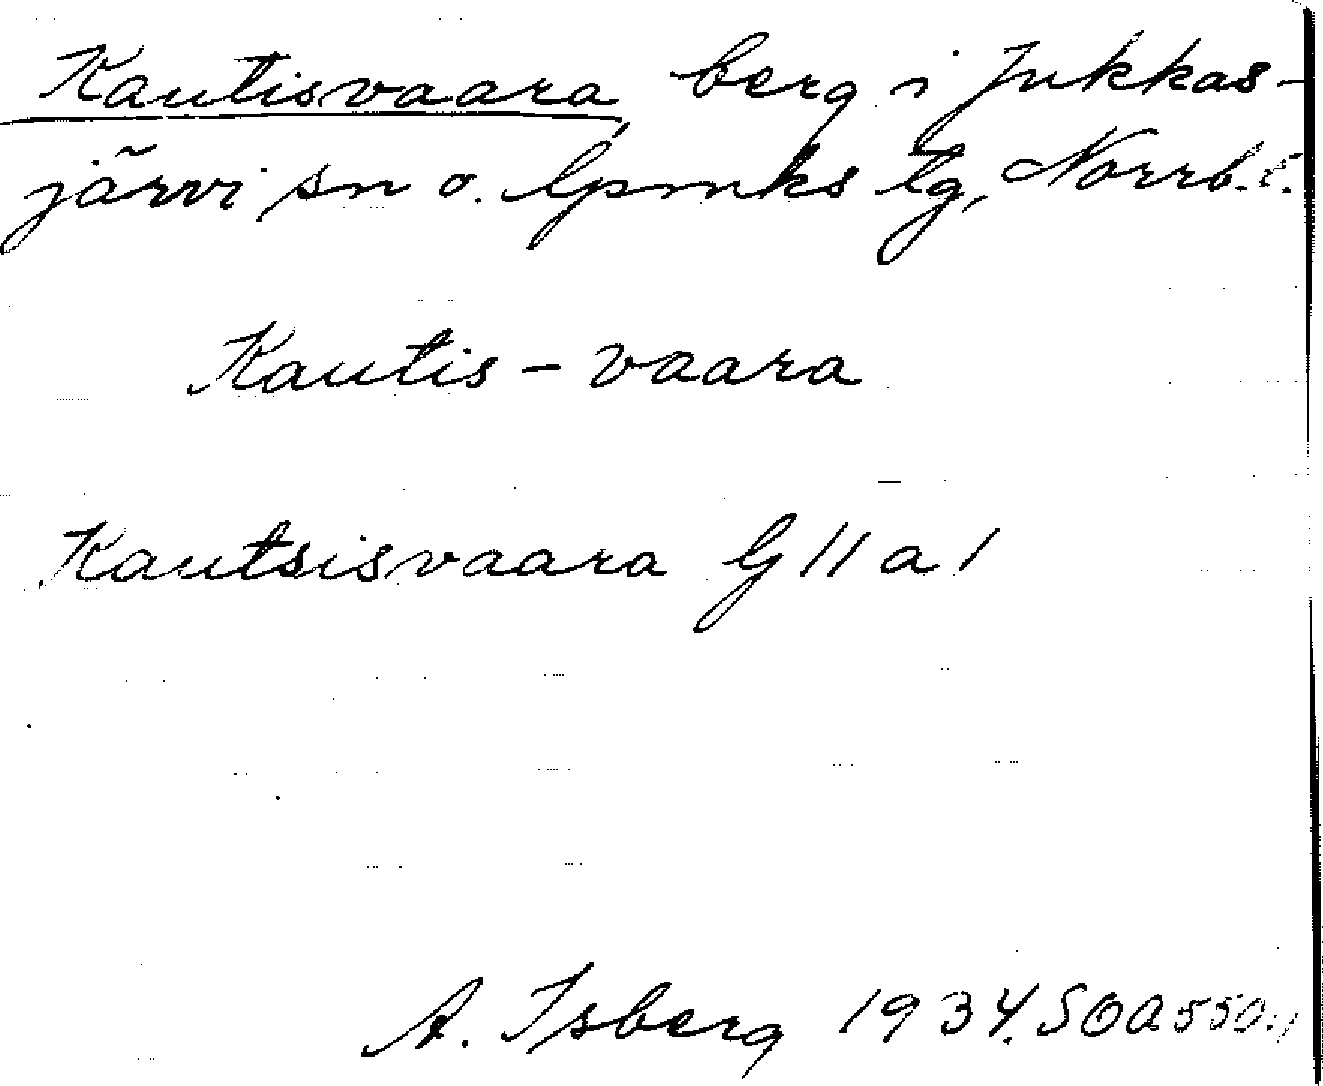 Kautisvaara, berg i Jukkas-
järvi sn o. lpmks tg, Norrb. l.
Kautis - vaara
Kautsisvaara G 11 a 1
A. Isberg 1934. SOA 550: